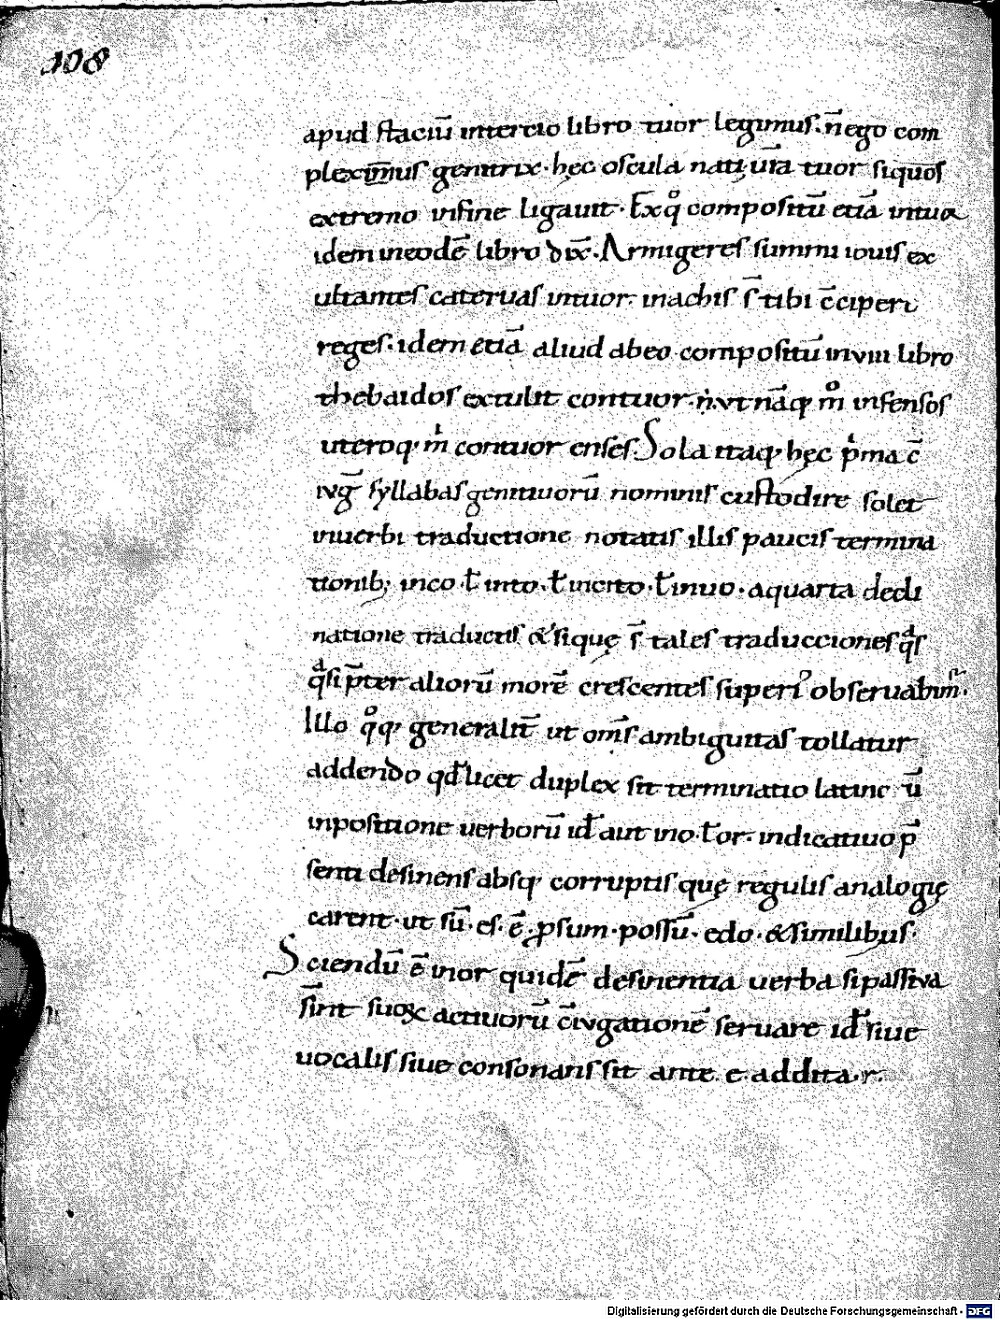 108
apud staciū intercio libro tuor legimus. n̄ ego com
plexim̄us genitrix. hęc oscula nati; ur̄a tuor siquos
extremo infine ligauit. Exq̊ compositū etiā intuor
idem ineodē libro dix̄. Armigeres summi iouis ex
ultantes cateruas intuor. inachis s̄ tibi c̄ciperi
reges. idem etiā aliud abeo compositū inviii libro
thebaidos extulit contuor. ut infensos
uteroq. contuor enses. Sola itaq; hęc p̍ma c̄
iug̅ syllabas genitiuorū nominis custodire solet
inuerbi traductione notatis illis paucis termina
tionib; inco. ł into. ł incito. ł inuo. aquarta decli
natione traductis &sique s̄ tales traducciones
p̄ter aliorū morē crescentes superi᾽ obseruabim᾽.
Illo q̊q; generalit̄ ut om̄s ambiguitas tollatur
addendo qd̄ licet duplex sit terminatio latine ū
inpositione uerborū id̄ aut ino. ł or. indicatiuo p̄
senti desinens absq; corruptis quę regulis analogię
carent. ut sū. es. ē. ꝓsum. possū. edo. &similibus.
Sciendū ē inor quidē desinentia uerba si passiva
sīnt suoꝝ actiuorū c̄iugationē seruare id̄ siue
uocalis siue consonans sit ante. e. addita. r.
Digitalisierung gefördert durch die Deutsche Forschungsgemeinschaft - DFG